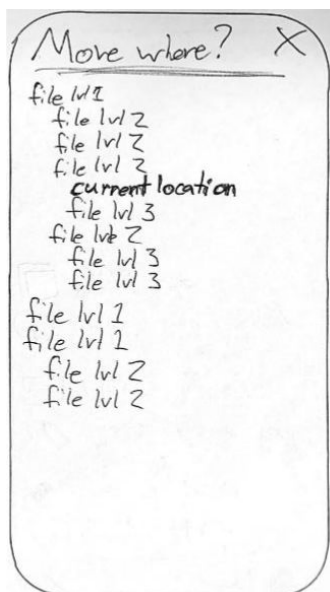 Move where? X
file lvl 1
file lvl 2
file lvl 2
file lvl 2
current location
file lvl 3
file lvl 2
file lvl 3
file lvl 3
file lvl 1
file lvl 1
file lvl 2
file lvl 2